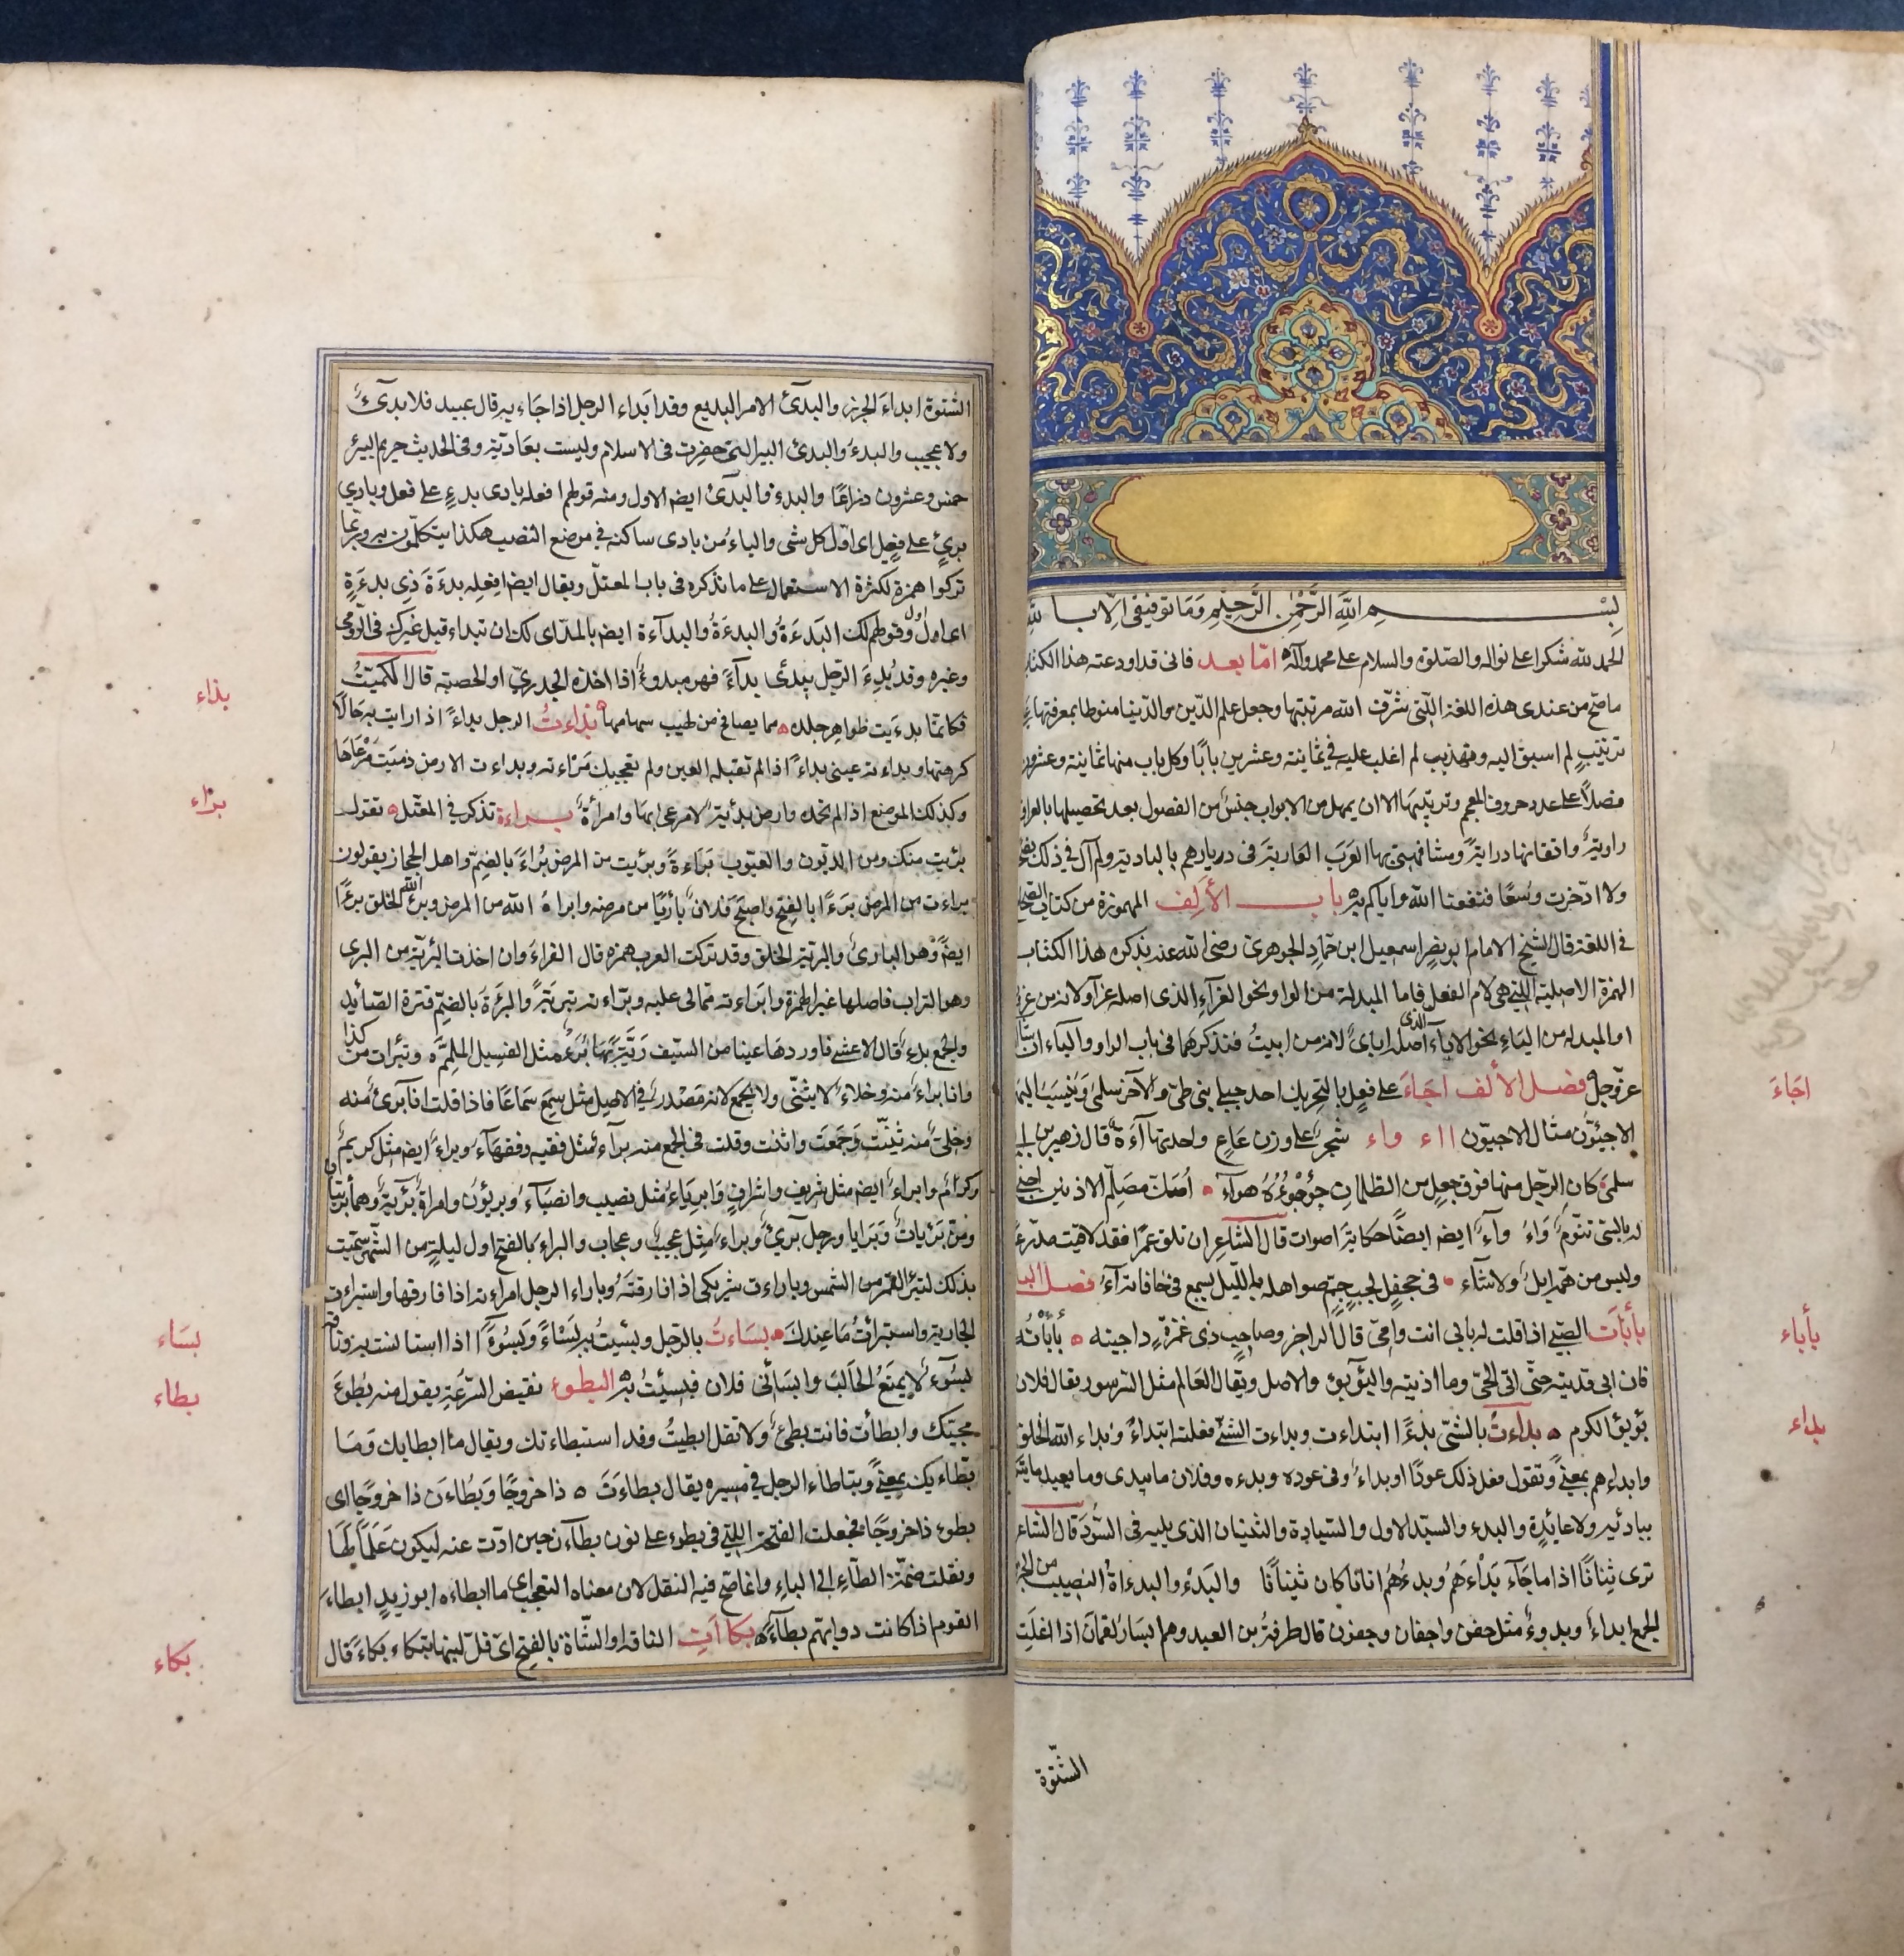 بسم الله الرَّحْمٰنِ الرَّحِيْمِ وَمَا توفيقى الّا با لله
الحمد لله شكرا على نواله والصّلوة والسلام على محمد وآله امّا بعد فانى قد اودعت هذا الكتاب
ما صحّ من عندى هذه اللغة اللّتى شرّف الله مرتبتها وجعل علم الدّين والدّنيا منوطا بمعرفتها على
ترتيبٍ لم اسبق اليه وتهذيب لم اغلب عليه فى ثمانية وعشرين بابًا وكل باب منها ثمانية وعشرون
فصلاً على عدد حروف المعجم وترتيبها الا ان يهمل من الابواب جنسٌ من الفصول بعد تحصيلها بالعراق
رواية واتقانها دراية ومشافهتى بها العَرَبَ العَاربَة فى ديارهم بالبادية ولم آل فى ذلك نصحا
ولا ادّخرت وسعًا فنفعنا الله واياكم به باب الألف المهموزة من كتاب الصحاح
فى اللغة قال الشيخ الامام ابو نصر اسمعيل ابن حمّاد الجوهرى رضى الله عنه نذكر ه هذا الكتاب
الهمزة الاصلية اللتى هى لام الفعل فاما المبدلة من الواو نحو العزآء الذى اصله عزآو لانه من عزوت
او المبدلة من الياء نحو الاباء الذى اصله اباى لانه من ابيتُ فنذكرهما فى باب الواو والياء ان شاء الله
عزّ وجل فصل الألف اجَاءَ على فعلٍ بالتحريك احد جبلى بنى طىّ والآخر سلمى وَيُنْسَبُ اليهما
الاجئيّون مثال الاجعيّون ااء واء شجر على وزن عَاعٍ واحدتها آءَة قال زهير بن ابى
سلمى كان الرّحل منها فوق صعلٍ من الظلمان جؤجؤه هوآء اصك مصلّم الاذنين اجنى
له بالسّىّ تنّوم وَآءُ وآءٌ ايضا حكاية اصوات قال الشاعر ان تلق عمرًا فقد لاقيت مدّرعًا
وليس من همّه ابل ولا شآء فى جحفلٍ لجبٍ جمٍّ صواهله بالليل يسمع فى حافاته آءُ فصل البا
بأبأت الصبىّ اذا قلت له بابى انت وامّى قال الراجز وصاحبٍ ذى غمرةٍ داجيته بأبأته
فان ابى فديته حتّى اتى الحىّ وما اذيته والبؤبؤ والاصل ويقال العالم مثل السرسور يقال فلان
بؤبؤ الكرم بداءتُ بالشىّ بدءًا ابتداءت وبداءت الشئ فعلته ابتداءً وبداء الله الخلق
وابداءهم بمعنىً وتقول فعل ذلك عودًا وبداءً وفى عوده وبدءه وفلان ما يبدى وما يعيد
ببادئة ولا عائدة والبدء والسيّد الاول والسيادة والثنيان الذى يليه فى السُّودَد قال الشاعر
ترى ثِنَانَا اذا ما جَآءَ بَدْأَهُمُ وبدءُهُم اتانا كان ثنيانًا والبَدْءُ والبدءاة النصيب من الجزور
الجمع ابداءُ وبدوءُ مثل جفن واجفان وجفون قال طرفة بن العبد وهم ايسار لقمان اذا اغلَت
الشتوة
اجَاءَ
بأباء
بداء
الشتوة ابداءَ الجزر والبدئُ الامر البديع وقد ابداء الرجل اذا جاء به قال عبيد فلا بدئُ
ولا عجيب والبدءُ والبدئُ البير التى حفرت فى الاسلام وليست بعادية وفى الحديث حريم البير
خمس وعشرون ذراعًا والبدء والبدئُ ايضا الاول ومنه قولهم افعله بادى بدءٍ على فعل وبادى
بدئٍ على فعيل اى اوّل كل شى والياءُ من بادى ساكنة فى موضع النصب هكذا يتكلّمون به وربما
تركوا همزة لكثرة الاستعمال على ما نذكره فى باب المعتلّ ويقال ايضا افعله بدءَةَ ذى بدءَةٍ
اى اول اول وقولهم لك البَدءَةُ والبدءَةُ والبدآءة ايضا بالمدّ اى لك ان تبداء قبل غيرك فى الرّمى
وغيره وقد بُدِءَ الرّجل يبدئ بدآءً فهو مبدوءٌ اذا اخذه الجدرىّ او الحصبة قال الكميتُ
فكانّما بدءَيت ظواهر جلده مما يصافح من لهيب سهامها بذاءتُ الرجل بذاءً اذا رايت به حالًا
كرهتها وبذاءته عينى بذاءً اذا لم تقبله العين ولم تعجبك مَرْاءَته وبذاءت الارض ذممت مَرْعَاهَا
وكذلك الموضع اذا لم تحمده وارض بذئة لا مرعى بها وامرأةٌ بذاءة تذكر فى المعتل براءة تقول
برئت منك ومن الديون والعيوب بَرَاءةً وبرئت من المرض بُراءً بالضمّ واهل الحجاز يقولون
براءت من المرض بَرءًا بالفتح واصبح فلانٌ بارئًا من مرضه وابراهُ الله من المرض وبرءَ الله الخلق بَرءًا
ايضا وهو البارئ والبرية الخلق وقد تركت العرب همزه قال الفراء وان اخذت البرية من البرى
وهو التراب فاصلها غير الهمزة وابراءته مما لى عليه وبرّاءته تبرئةً والبُرءَة بالضمّ فترة الصّائد
والجمع بُرء قال الاعشى فاوردها عينا من السّيف رَيّةً بها بُرَءٌ مثل الفسيل الملمّم وتبرات من كذا
وانا براءٌ منه وخلاءٌ لا يثنّى ولا يجمع لانه مصدر فى الاصل مثل سمِعَ سَمَاعًا فاذا قلت انا برىُ منه
وخلىٌّ منه ثنّيت وَجمعَت وانّثت وقلت فى الجمع منه برآء مثل فقيه وفقهآء وبراءٌ ايضا مثل كريمٍ
وكرَامٍ وابراءٌ ايضا مثل شريف واشرافٍ وابرياءُ مثل نصيب وانصبآء وبريئون وامراةٌ بريئة وهما بريئتان
وهنّ بَريئات وبَرَايا ورجل برىٌ وبراءٌ مثل عجيب وعجاب والبراء بالفتح اول ليلةٍ من الشّهر سمّيت
بذلك لتبرّئ القمر من الشمس وباراءت شريكى اذا فارقته وباراء الرجل امراءته اذا فارقها واستبراءت
الجارية واستبرأتُ مَا عِندكَ بسَاءتُ بالرّجل وبسئتُ به بَسْاءً وبُسُوءًا اذا استانست به وناقة
بسُوءٌ لا يمنَعُ الحَالبَ وابسَانى فلان فبسئتُ به البطوء نقيض السّرعة يقول منه بُطُوءَ
مجيئك وابطأت فانت بطئٌ ولا تقل ابطيتُ وقد استبطاءتك ويقال ما ابطا بك وَمَا
بطّاء بك بمعنىً وتباطاء الرجل فى مسيره يقال بطاءَتَ ذا خروجًا وبُطَاءَن ذا خروجًا اى
بطوء ذا خروجًا فجعلت الفتحة اللتى فى بطوء على نون بطآءن حين ادّت عنه ليكون عَلَمًا لها
ونقلت ضمّة الطآء الى الباء وانما صحّ فيه النقل لان معناه التعجب اى ما ابطاءه ابو زيدٍ ابطاء
القوم اذا كانت دوابّهم بطآءً بكاَات الناقة او الشّاة بالفتح اى قلّ لبنها تبكاء بكاءً قال
بذاء
براء
بسَاء
بطاء
بكاء